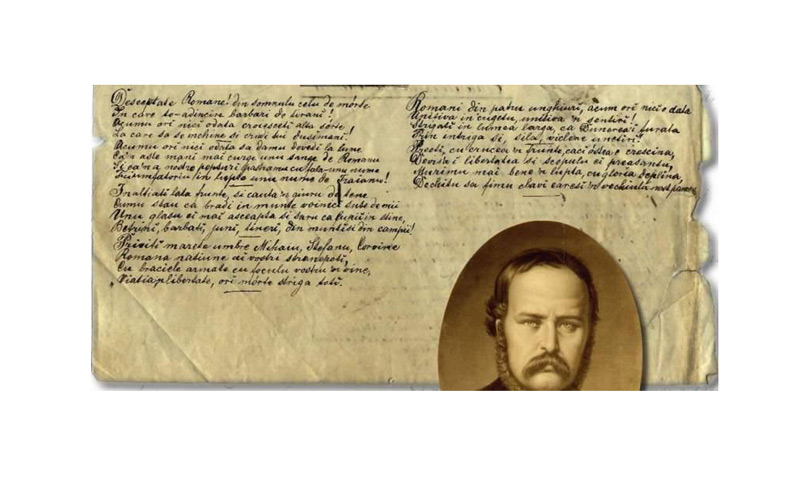 Desceptate Romane! din somnulu celu de mórte
In care te-adîncire barbari de tirani!
Acumu ori nici odata croiesceti alta sórte
La care sa se inchine si crudii tei dusimani!
Acumu ori nici odata sa damu dovedi la lume
Ca'n aste mani mai curge unu sange de Romanu
Si ca'n a nostre pepturi pastramu cu fala unu nume
Triumfatoriu in lupte unu nume de Traianu!
Inaltiati lata frunte, si cauta'n giuru de tene
Cumu stau ca bradi in munte voinici sute de mii
Unu glasu ei mai ascepta si saru ca lupii in stine,
Betrani, barbati, juni, tineri, din muntisi din campii!
Priviti marete umbre Mihaiu, Stefanu, Corvine
Romana natiune ai vostri stranepoti,
Cu braciele armate cu foculu vostru'n vine,
Viatia'n libertate, ori mórte striga toti.
Romani din patru unghiuri, acum ori nici o data
Uniti-va in cugetu, uniti-va'n sentiri!
Strigati in lumea larga, ca Dunerea-i furata
Prin intriga si, sila, viclene unctiri!
Preoti, cu crucea'n frunte, caci óstea e crescina,
Devisa-i libertatea si scopulu ei preasantu,
Murimu mai bene'n lupta, cu gloria deplina,
Decâtu sa fimu sclavi earesi'n vechiulu nost